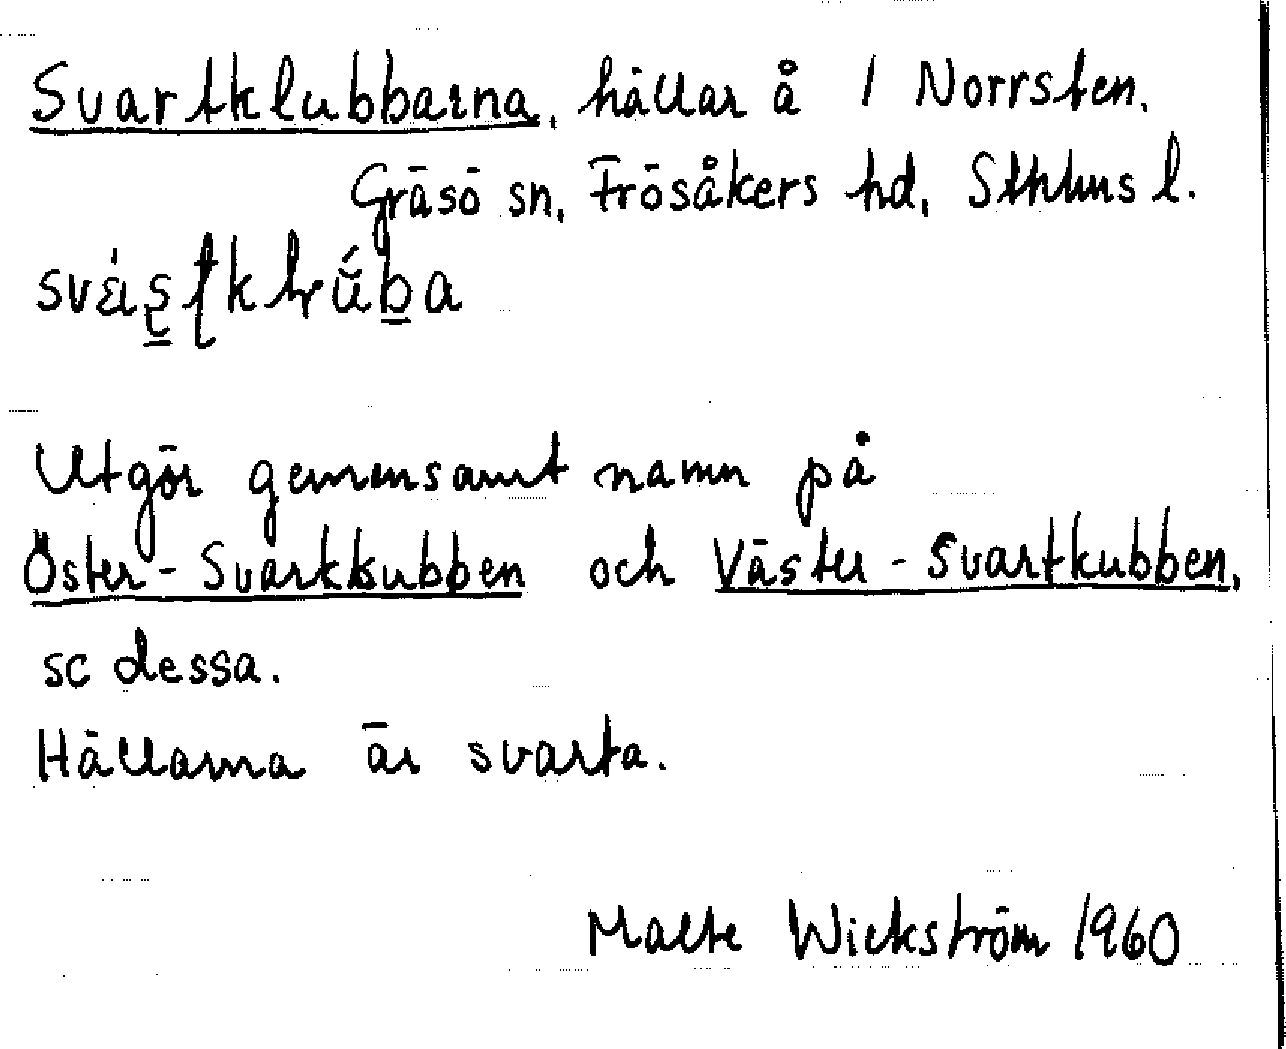 Svartklubbarna, hällar å 1 Norrsten.
Gräsö sn, Frösåkers hd, Sthlms l.
Utgör gemensamt namn på
Öster-Svartkubben och Väster-Svartkubben,
se dessa.
Hällarna är svarta.
Malte Wickström 1960